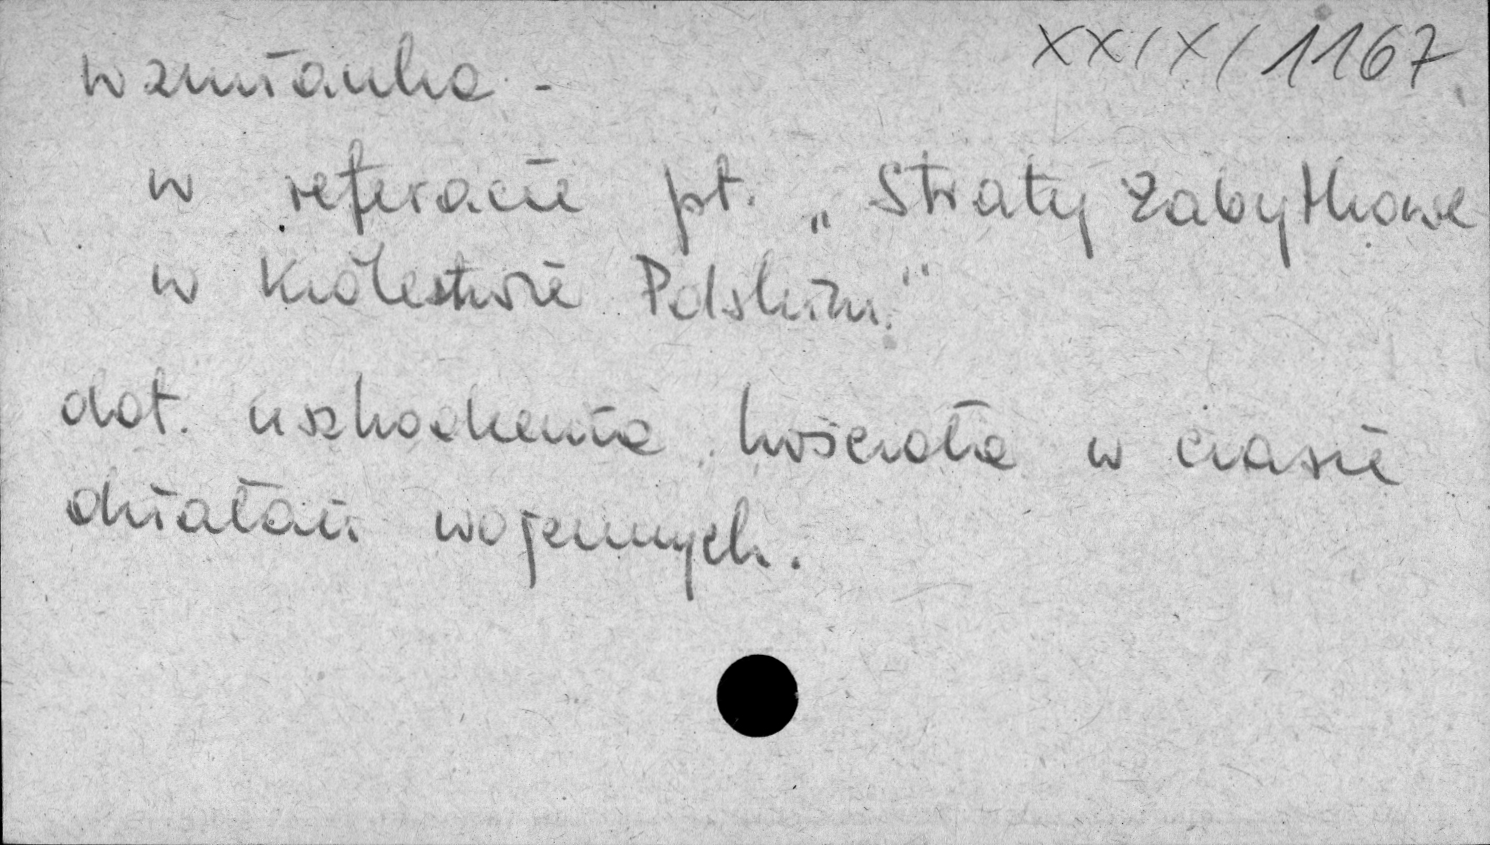 XXIX/1167
wzmianka -
w referacie pt. „Straty zabytkowe
w Królestwie Polskim."
dot. uszkodzenia kościoła w czasie
działań wojennych.